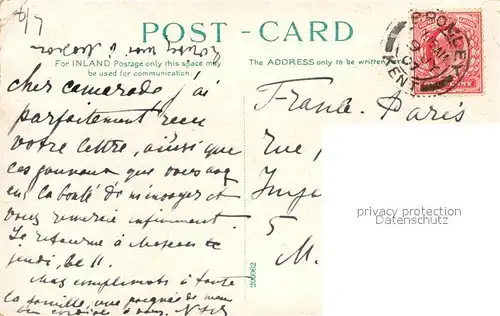 6/8
POST - CARD
For INLAND Postage only this space may
be used for communication.
The ADDRESS only to be written
BROMLEY
KENT
cher camarade, j'ai
parfaitement reçu
votre lettre, ainsi que
ces journaux que vous
en la bonté de m'envoyer et
vous remercie infiniment.
Je retourne à Moscou
jeudi, le 11.
Mes compliments à toute
la famille, une poignée de main
à vous.
France. Paris
rue,
5
M.
privacy protection
Datenschutz